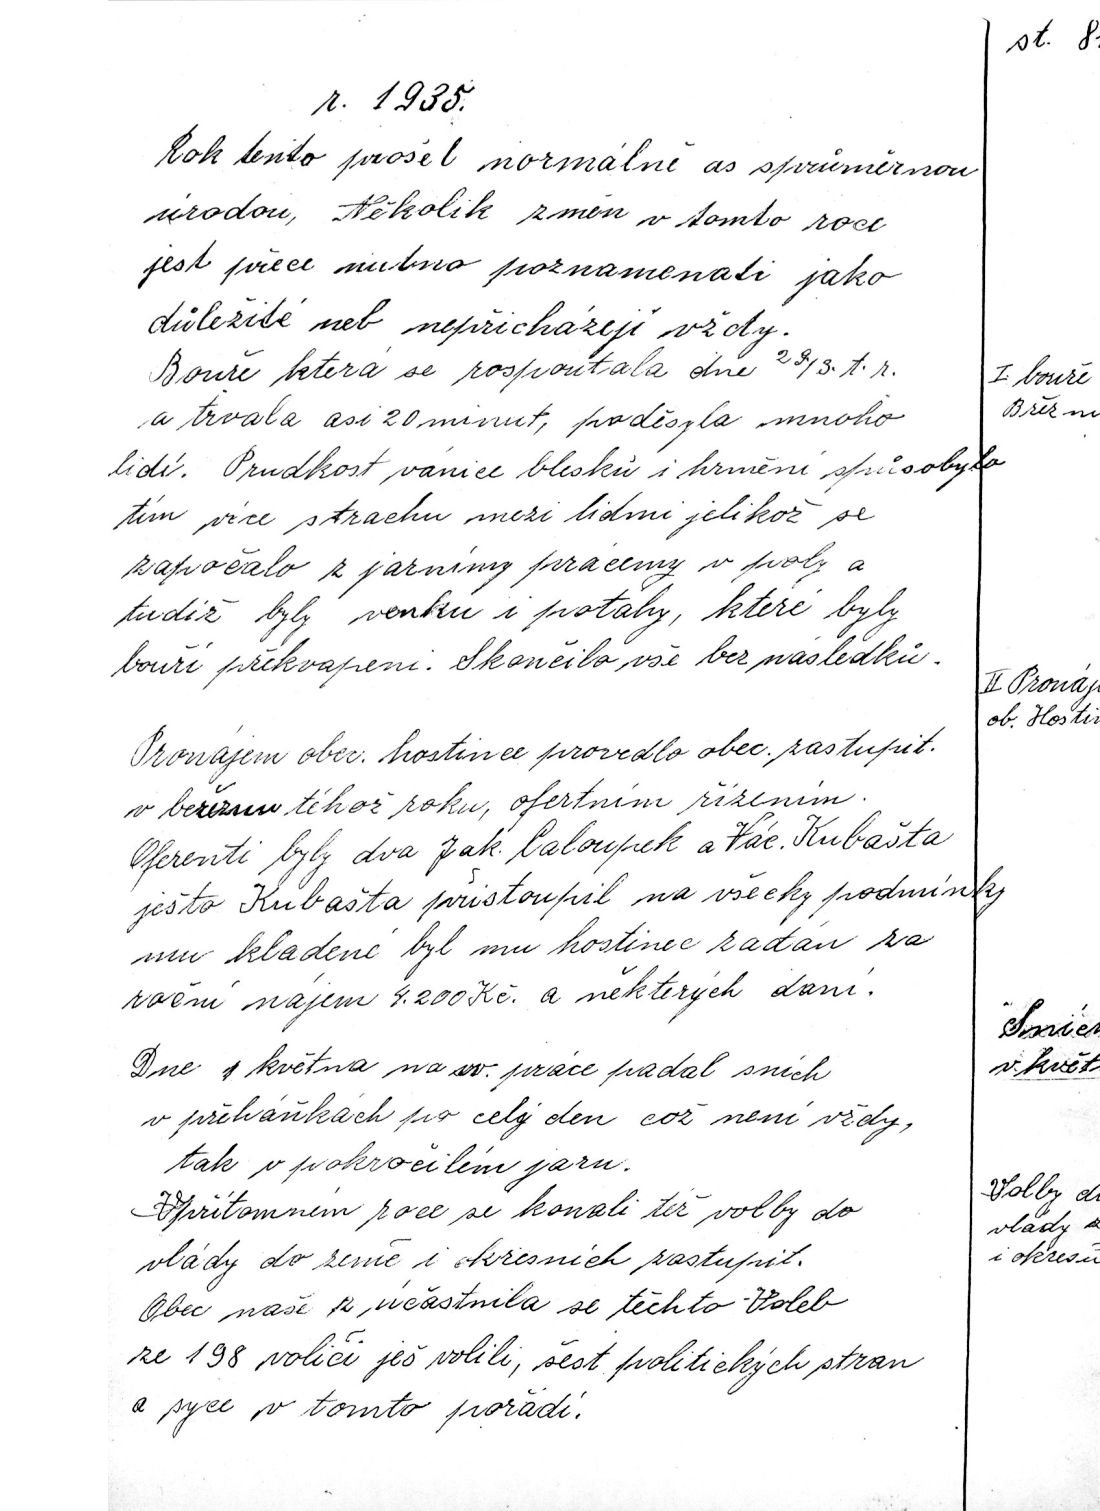 st. 8
r. 1935.
Rok tento prošel normálně as sprůměrnou
úrodou, Několik změn v tomto roce
jest přece nutno poznamenati jako
důležité neb nepřicházejí vždy.
Bouře která se rozpoutala dne 29/3. t. r.
I. bouře
a trvala asi 20 minut, poděsyla mnoho
Březnu
lidí. Prudkost vánice blesků i hrmění spůsobyla
tím více strachu mezi lidmi jelikož se
započalo z jarnímy pracemy v poly a
tudíž byly venku i potahy, které byly
bouří překvapeni. Skončilo vše bez následků.
II Pronáj
ob. Hostin
Pronájem obec. hostince provedlo obec. zastupit.
v březnu téhož roku, ofertním řízením.
Oferenti byly dva Jak. Caloupek a Vác. Kubašta
ješto Kubašta přistoupil na všecky podmínky
mu kladené byl mu hostinec zadán za
roční nájem 4.200 Kč. a některých daní.
Sníh
Dne 1 května na sv. práce padal sních
v květ
v přeháňkách po celý den což není vždy,
tak v pokročilém jaru.
Volby do
Vpřítomném roce se konali též volby do
vlády
vlády do země i okresních zastupit.
i okresů
Obec naše z účastnila se těchto Voleb
ze 198 voliči jež volili, šest politických stran
a syce v tomto pořádí.